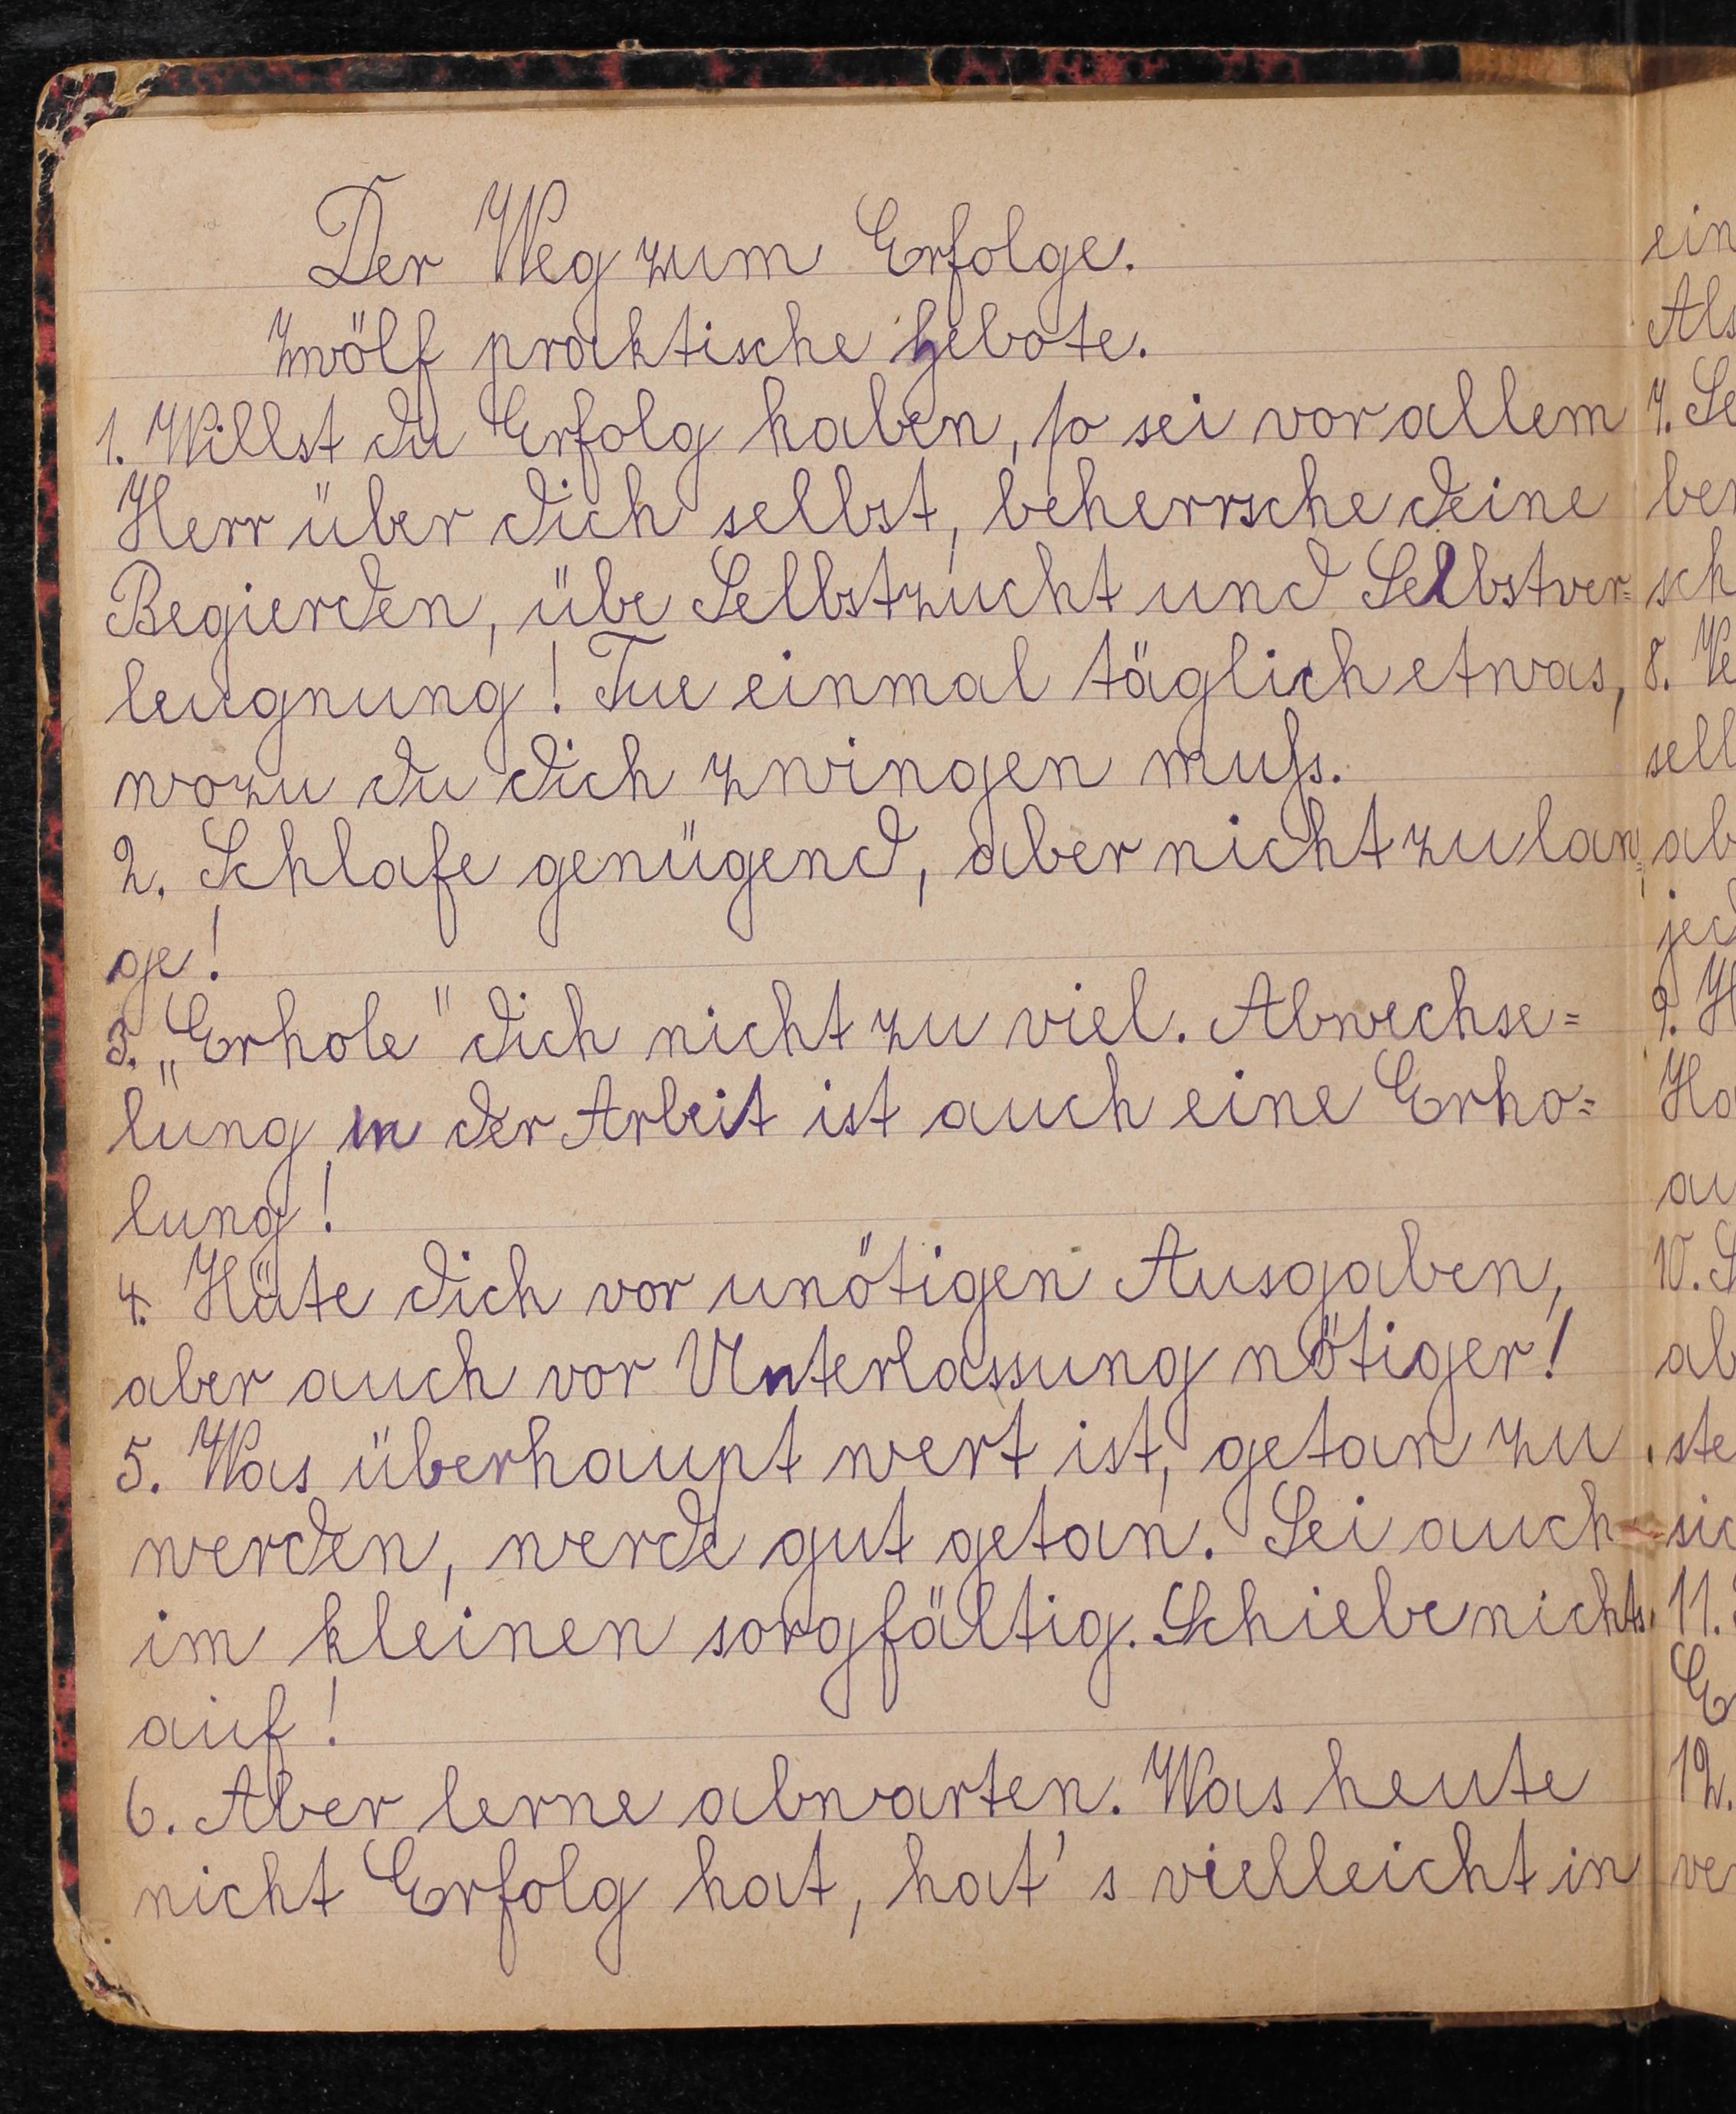 Der Weg zum Erfolge.
Zwölf praktische Gebote.
1. Willst du Erfolg haben, so sei vor allem
Herr über dich selbst, beherrsche deine
Begierden, übe Selbstzucht und Selbstver=
leugnung! Tue einmal täglich etwas,
wozu du dich zwingen muss.
2. Schlafe genügend, aber nicht zu lan=
ge!
3. „Erhole" dich nicht zu viel. Abwechse=
lung in der Arbeit ist auch eine Erho=
lung!
4. Hüte dich vor unötigen Ausgaben,
aber auch vor Unterlassung nötiger!
5. Was überhaupt wert ist, getan zu
werden, werde gut getan. Sei auch
im kleinen sorgfältig. Schiebe nichts
auf!
6. Aber lerne abwarten. Was heute
nicht Erfolg hat, hat's vielleicht in
ein
Als
7. Se
ber
sch
8. Ve
sell
ab
jed
9. H
Ha
au
10. S
ab
ste
sic
11.
E
12.
ver